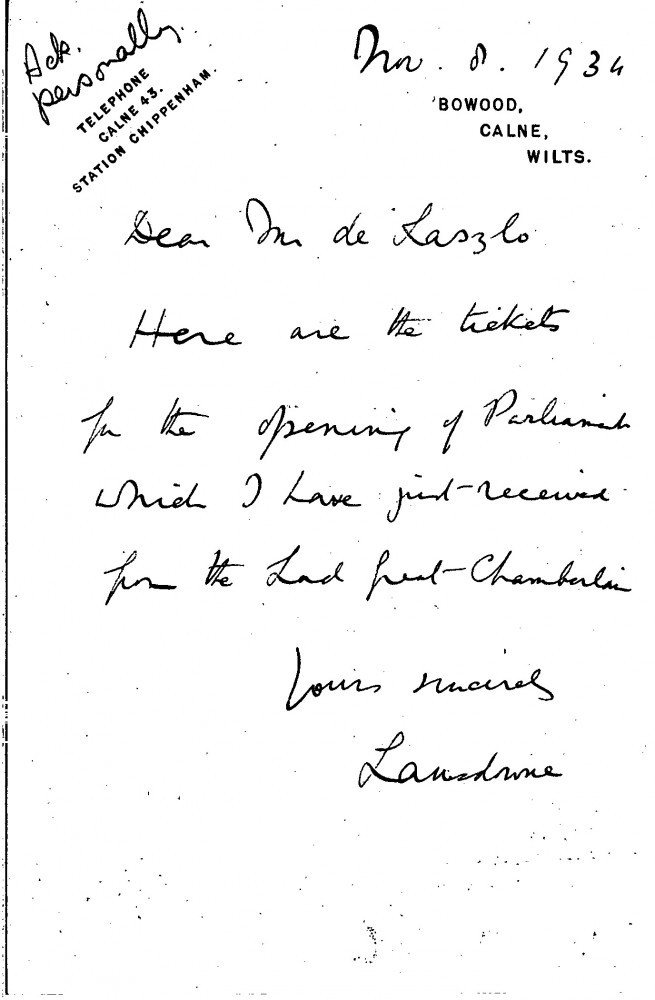 Ack.
personally.
TELEPHONE
CALNE 43.
STATION CHIPPENHAM.
Nov. 8. 1934
BOWOOD,
CALNE,
WILTS.
Dear Mr de Laszlo
Here are the tickets
for the opening of Parliament
which I have just received
from the Lord Great Chamberlain
Yours sincerely
Lansdowne